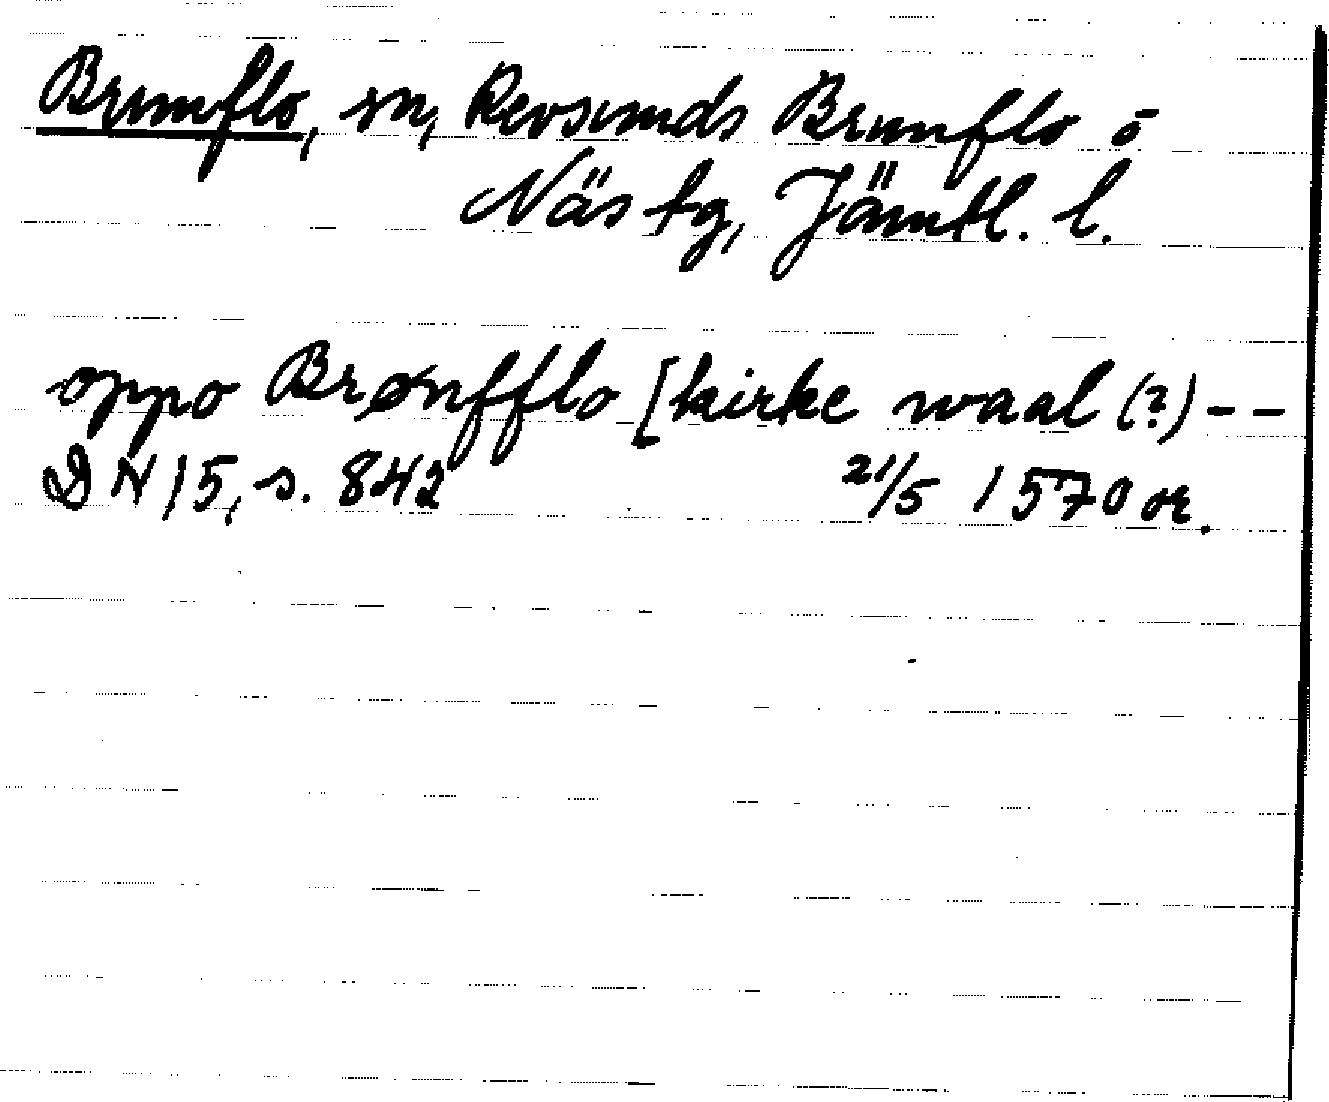 Brunflo, sn, Revsunds Brunflo o
Näs tg, Jämtl. l.
oppo Brønfflo [kirke waal (?) - -
DN 15, s. 842 21/5 1570 or.